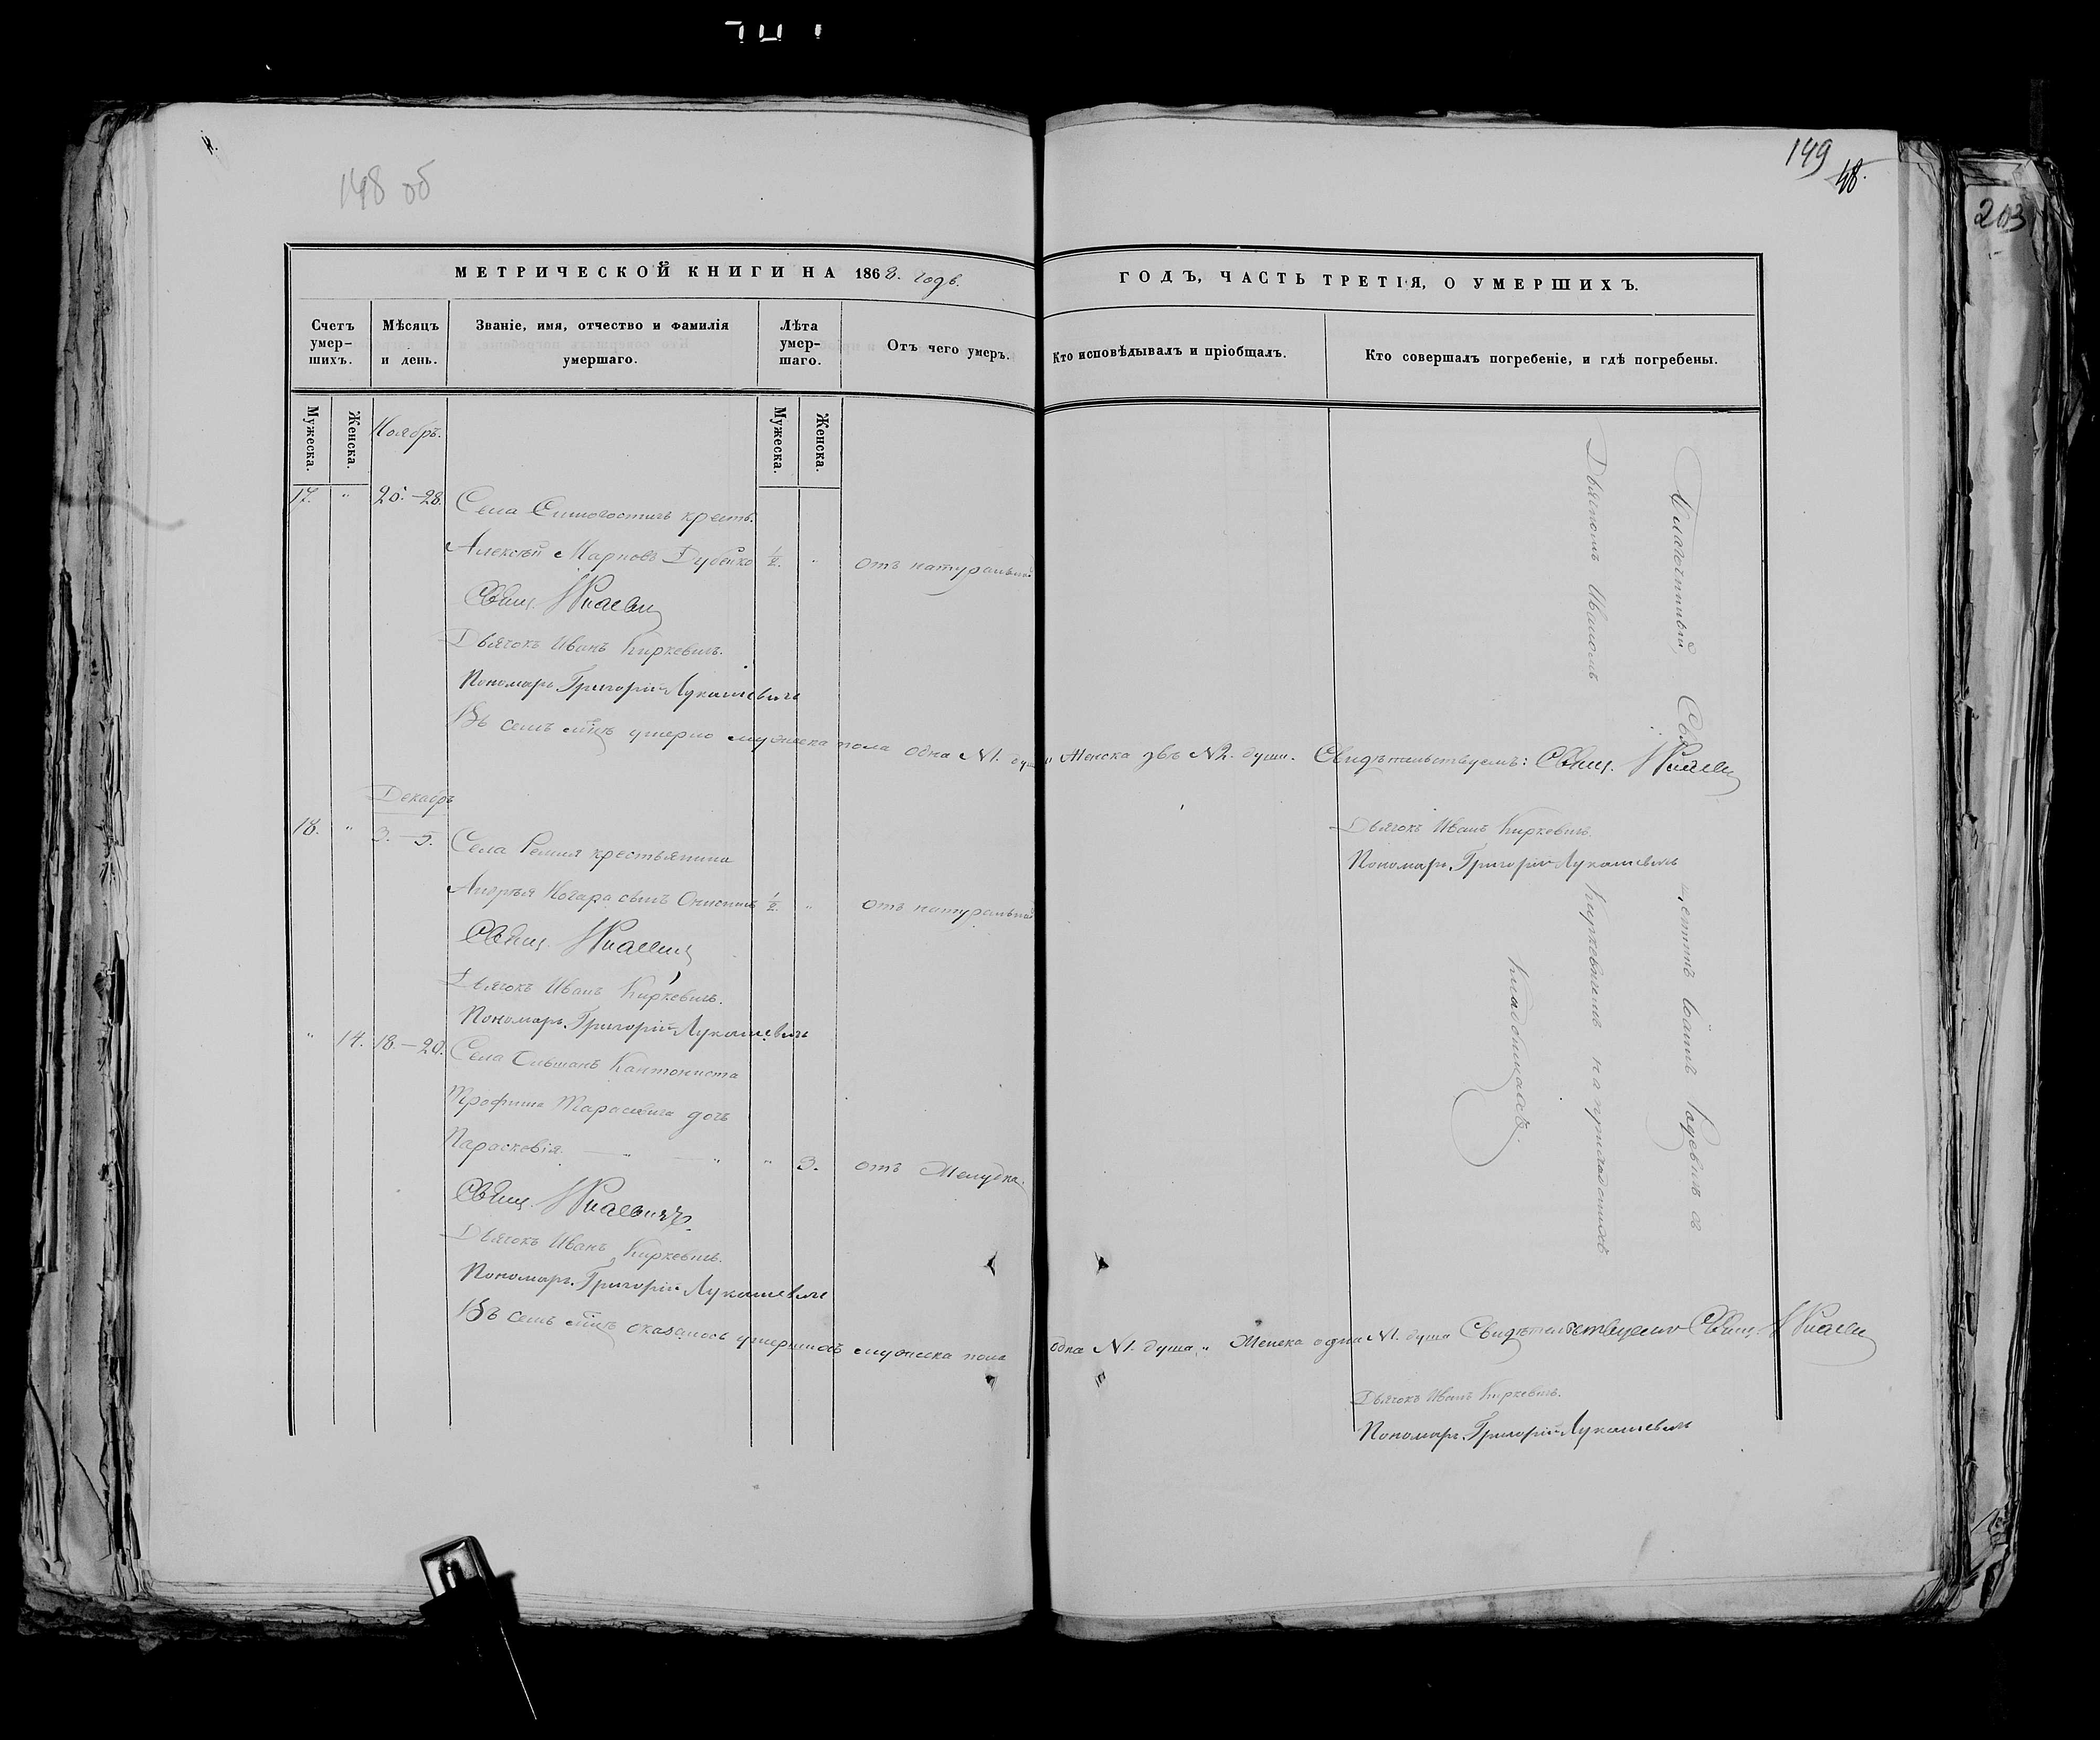 148 об
149
48.
203
МЕТРИЧЕСКОЙ КНИГИ НА 1868. годъ.
ГОДЪ, ЧАСТЬ ТРЕТІЯ, О УМЕРШИХЪ.
Счетъ умер-шихъ.
Мѣсяцъ и день.
Званіе, имя, отчество и фамилія умершаго.
Лѣта умер-шаго.
Отъ чего умеръ.
Кто исповѣдывалъ и пріобщалъ.
Кто совершалъ погребеніе, и гдѣ погребены.
Мужеска.
Женска.
Мужеска.
Женска.
Ноябрь.
17. " 26.-28. Села крест.
Алексѣй Марковъ Дубейко 1/2. " отъ натуральной
Свящ.
Дьячокъ Иванъ Киркевичъ.
Пономарь Григорій Лукашевичъ
Въ семъ мцѣ умерло мужеска пола одна №1. душа Женска двѣ №2. души. Свидѣтельствуемъ: Свящ.
Дьячокъ Иванъ Киркевичъ.
Пономарь Григорій Лукашевичъ
Декабрь
18. " 3.-5. Села Ремля крестьянина
Андрея сынъ Онисимъ 1/2. " отъ натуральной
Свящ.
Дьячокъ Иванъ Киркевичъ.
Пономарь Григорій Лукашевичъ
" 14. 18.-20. Села Ольшанъ Кантониста
Трофима Тарасевича дочь
Параскевія — " — " " 3. отъ Желудка.
Свящ.
Дьячокъ Иванъ Киркевичъ.
Пономарь Григорій Лукашевичъ
Въ семъ мцѣ оказалось умершихъ мужеска пола одна №1. душа " Женска одна №1. душа Свидѣтельствуемъ Свящ.
Дьячокъ Иванъ Киркевичъ.
Пономарь Григорій Лукашевичъ
Благочинный, Священникъ Іоаннъ Радевичъ съ
Дьячкомъ Иваномъ Киркевичемъ на приходскихъ
кладбищахъ.